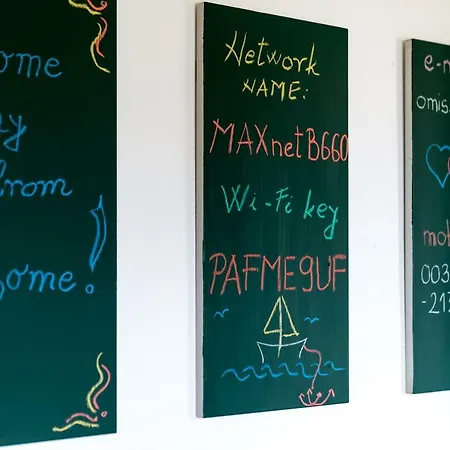 ome
y
from
ome!
Network
NAME:
MAXnetB660
Wi-Fi key
PAFME9UF
e-m
omis
mob
003
-213